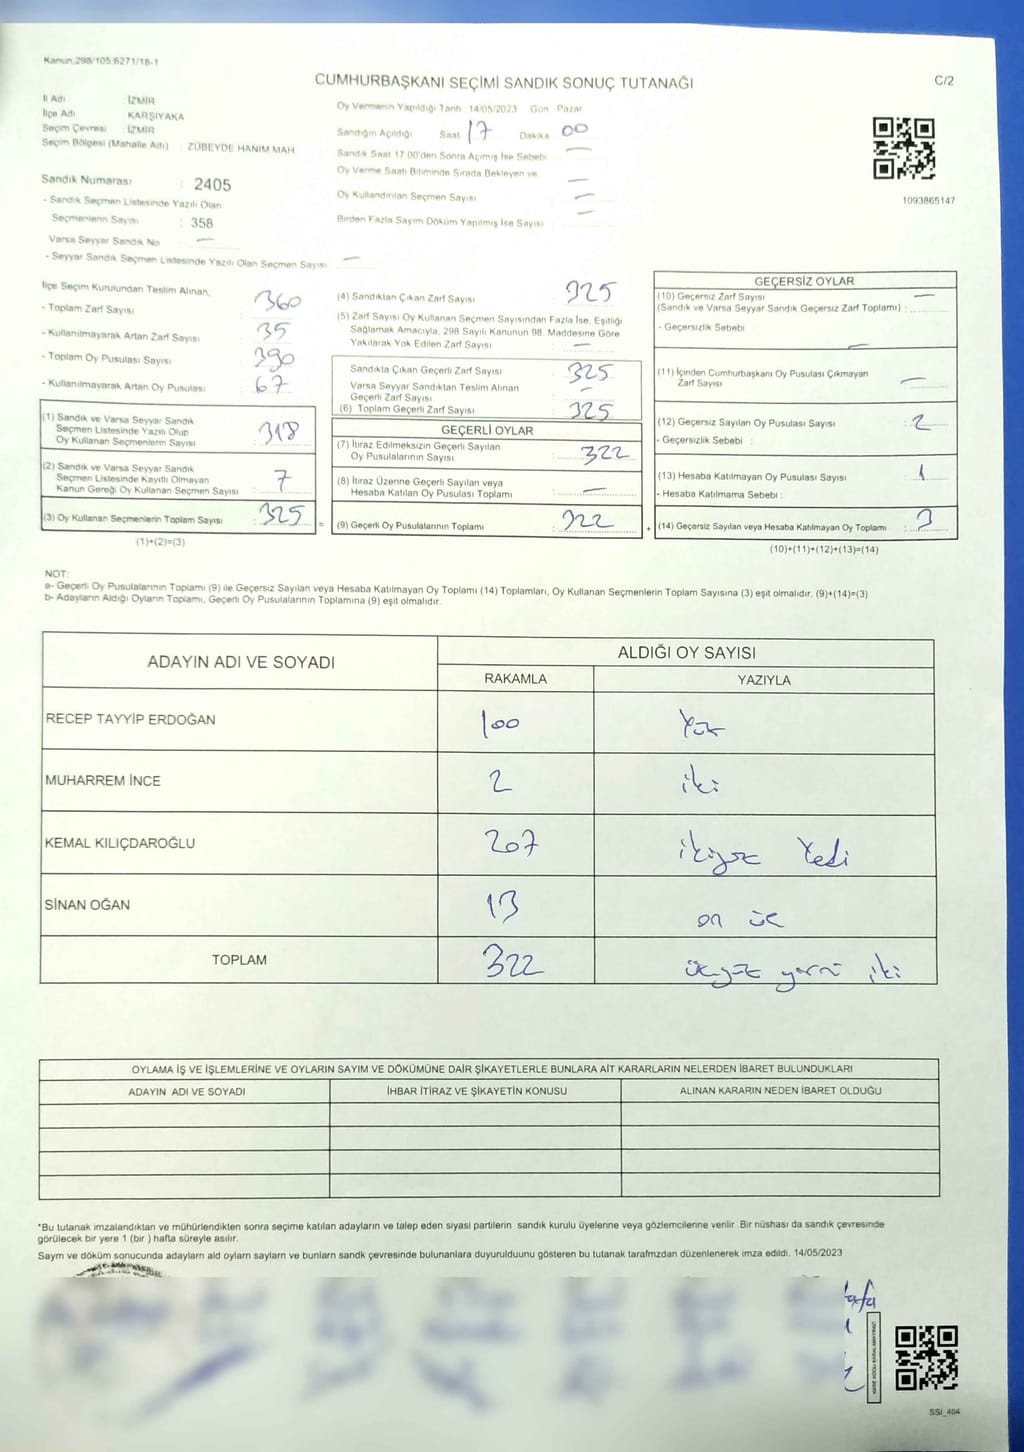 Kanun:298/105:6271/18-1
CUMHURBAŞKANI SEÇİMİ SANDIK SONUÇ TUTANAĞI
C/2
İl Adı : İZMİR
İlçe Adı : KARŞIYAKA
Seçim Çevresi : İZMİR
Seçim Bölgesi (Mahalle Adı) : ZÜBEYDE HANIM MAH.
Sandık Numarası : 2405
- Sandık Seçmen Listesinde Yazılı Olan
Seçmenlerin Sayısı : 358
Varsa Seyyar Sandık No : —
- Seyyar Sandık Seçmen Listesinde Yazılı Olan Seçmen Sayısı : —
Oy Vermenin Yapıldığı Tarih 14/05/2023 Gün Pazar
Sandığın Açıldığı Saat 17 Dakika 00
Sandık Saat 17:00'den Sonra Açımış İse Sebebi —
Oy Verme Saati Bitiminde Sırada Bekleyen ve
Oy Kullandırılan Seçmen Sayısı —
Birden Fazla Sayım Döküm Yapılmış İse Sayısı —
1093865147
İlçe Seçim Kurulundan Teslim Alınan,
- Toplam Zarf Sayısı : 360
- Kullanılmayarak Artan Zarf Sayısı : 35
- Toplam Oy Pusulası Sayısı : 390
- Kullanılmayarak Artan Oy Pusulası : 67
(1) Sandık ve Varsa Seyyar Sandık
Seçmen Listesinde Yazılı Olup
Oy Kullanan Seçmenlerin Sayısı : 318
(2) Sandık ve Varsa Seyyar Sandık
Seçmen Listesinde Kayıtlı Olmayan
Kanun Gereği Oy Kullanan Seçmen Sayısı : 7
(3) Oy Kullanan Seçmenlerin Toplam Sayısı : 325
(1)+(2)=(3)
(4) Sandıktan Çıkan Zarf Sayısı : 325
(5) Zarf Sayısı Oy Kullanan Seçmen Sayısından Fazla İse, Eşitliği
Sağlamak Amacıyla, 298 Sayılı Kanunun 98. Maddesine Göre
Yakılarak Yok Edilen Zarf Sayısı : —
Sandıkta Çıkan Geçerli Zarf Sayısı : 325
Varsa Seyyar Sandıktan Teslim Alınan
Geçerli Zarf Sayısı : —
(6) Toplam Geçerli Zarf Sayısı : 325
GEÇERLİ OYLAR
(7) İtiraz Edilmeksizin Geçerli Sayılan
Oy Pusulalarının Sayısı : 322
(8) İtiraz Üzerine Geçerli Sayılan veya
Hesaba Katılan Oy Pusulası Toplamı : —
= (9) Geçerli Oy Pusulalarının Toplamı : 322
GEÇERSİZ OYLAR
(10) Geçersiz Zarf Sayısı —
(Sandık ve Varsa Seyyar Sandık Geçersiz Zarf Toplamı) :
- Geçersizlik Sebebi —
(11) İçinden Cumhurbaşkanı Oy Pusulası Çıkmayan
Zarf Sayısı : —
(12) Geçersiz Sayılan Oy Pusulası Sayısı : 2
- Geçersizlik Sebebi :
(13) Hesaba Katılmayan Oy Pusulası Sayısı : 1
- Hesaba Katılmama Sebebi :
+ (14) Geçersiz Sayılan veya Hesaba Katılmayan Oy Toplamı : 3
(10)+(11)+(12)+(13)=(14)
NOT:
a- Geçerli Oy Pusulalarının Toplamı (9) ile Geçersiz Sayılan veya Hesaba Katılmayan Oy Toplamı (14) Toplamları, Oy Kullanan Seçmenlerin Toplam Sayısına (3) eşit olmalıdır. (9)+(14)=(3)
b- Adayların Aldığı Oyların Toplamı, Geçerli Oy Pusulalarının Toplamına (9) eşit olmalıdır.
ADAYIN ADI VE SOYADI
ALDIĞI OY SAYISI
RAKAMLA YAZIYLA
RECEP TAYYİP ERDOĞAN 100 Yüz
MUHARREM İNCE 2 iki
KEMAL KILIÇDAROĞLU 207 ikiyüz Yedi
SİNAN OĞAN 13 on üç
TOPLAM 322 üçyüz yirmi iki
OYLAMA İŞ VE İŞLEMLERİNE VE OYLARIN SAYIM VE DÖKÜMÜNE DAİR ŞİKAYETLERLE BUNLARA AİT KARARLARIN NELERDEN İBARET BULUNDUKLARI
ADAYIN ADI VE SOYADI İHBAR İTİRAZ VE ŞİKAYETİN KONUSU ALINAN KARARIN NEDEN İBARET OLDUĞU
*Bu tutanak imzalandıktan ve mühürlendikten sonra seçime katılan adayların ve talep eden siyasi partilerin sandık kurulu üyelerine veya gözlemcilerine verilir .Bir nüshası da sandık çevresinde
görülecek bir yere 1 (bir ) hafta süreyle asılır.
Sayım ve döküm sonucunda adayların ald oyların saylarn ve bunların sandk çevresinde bulunanlara duyurulduunu gösteren bu tutanak tarafmzdan düzenlenerek imza edildi. 14/05/2023
SSI_404